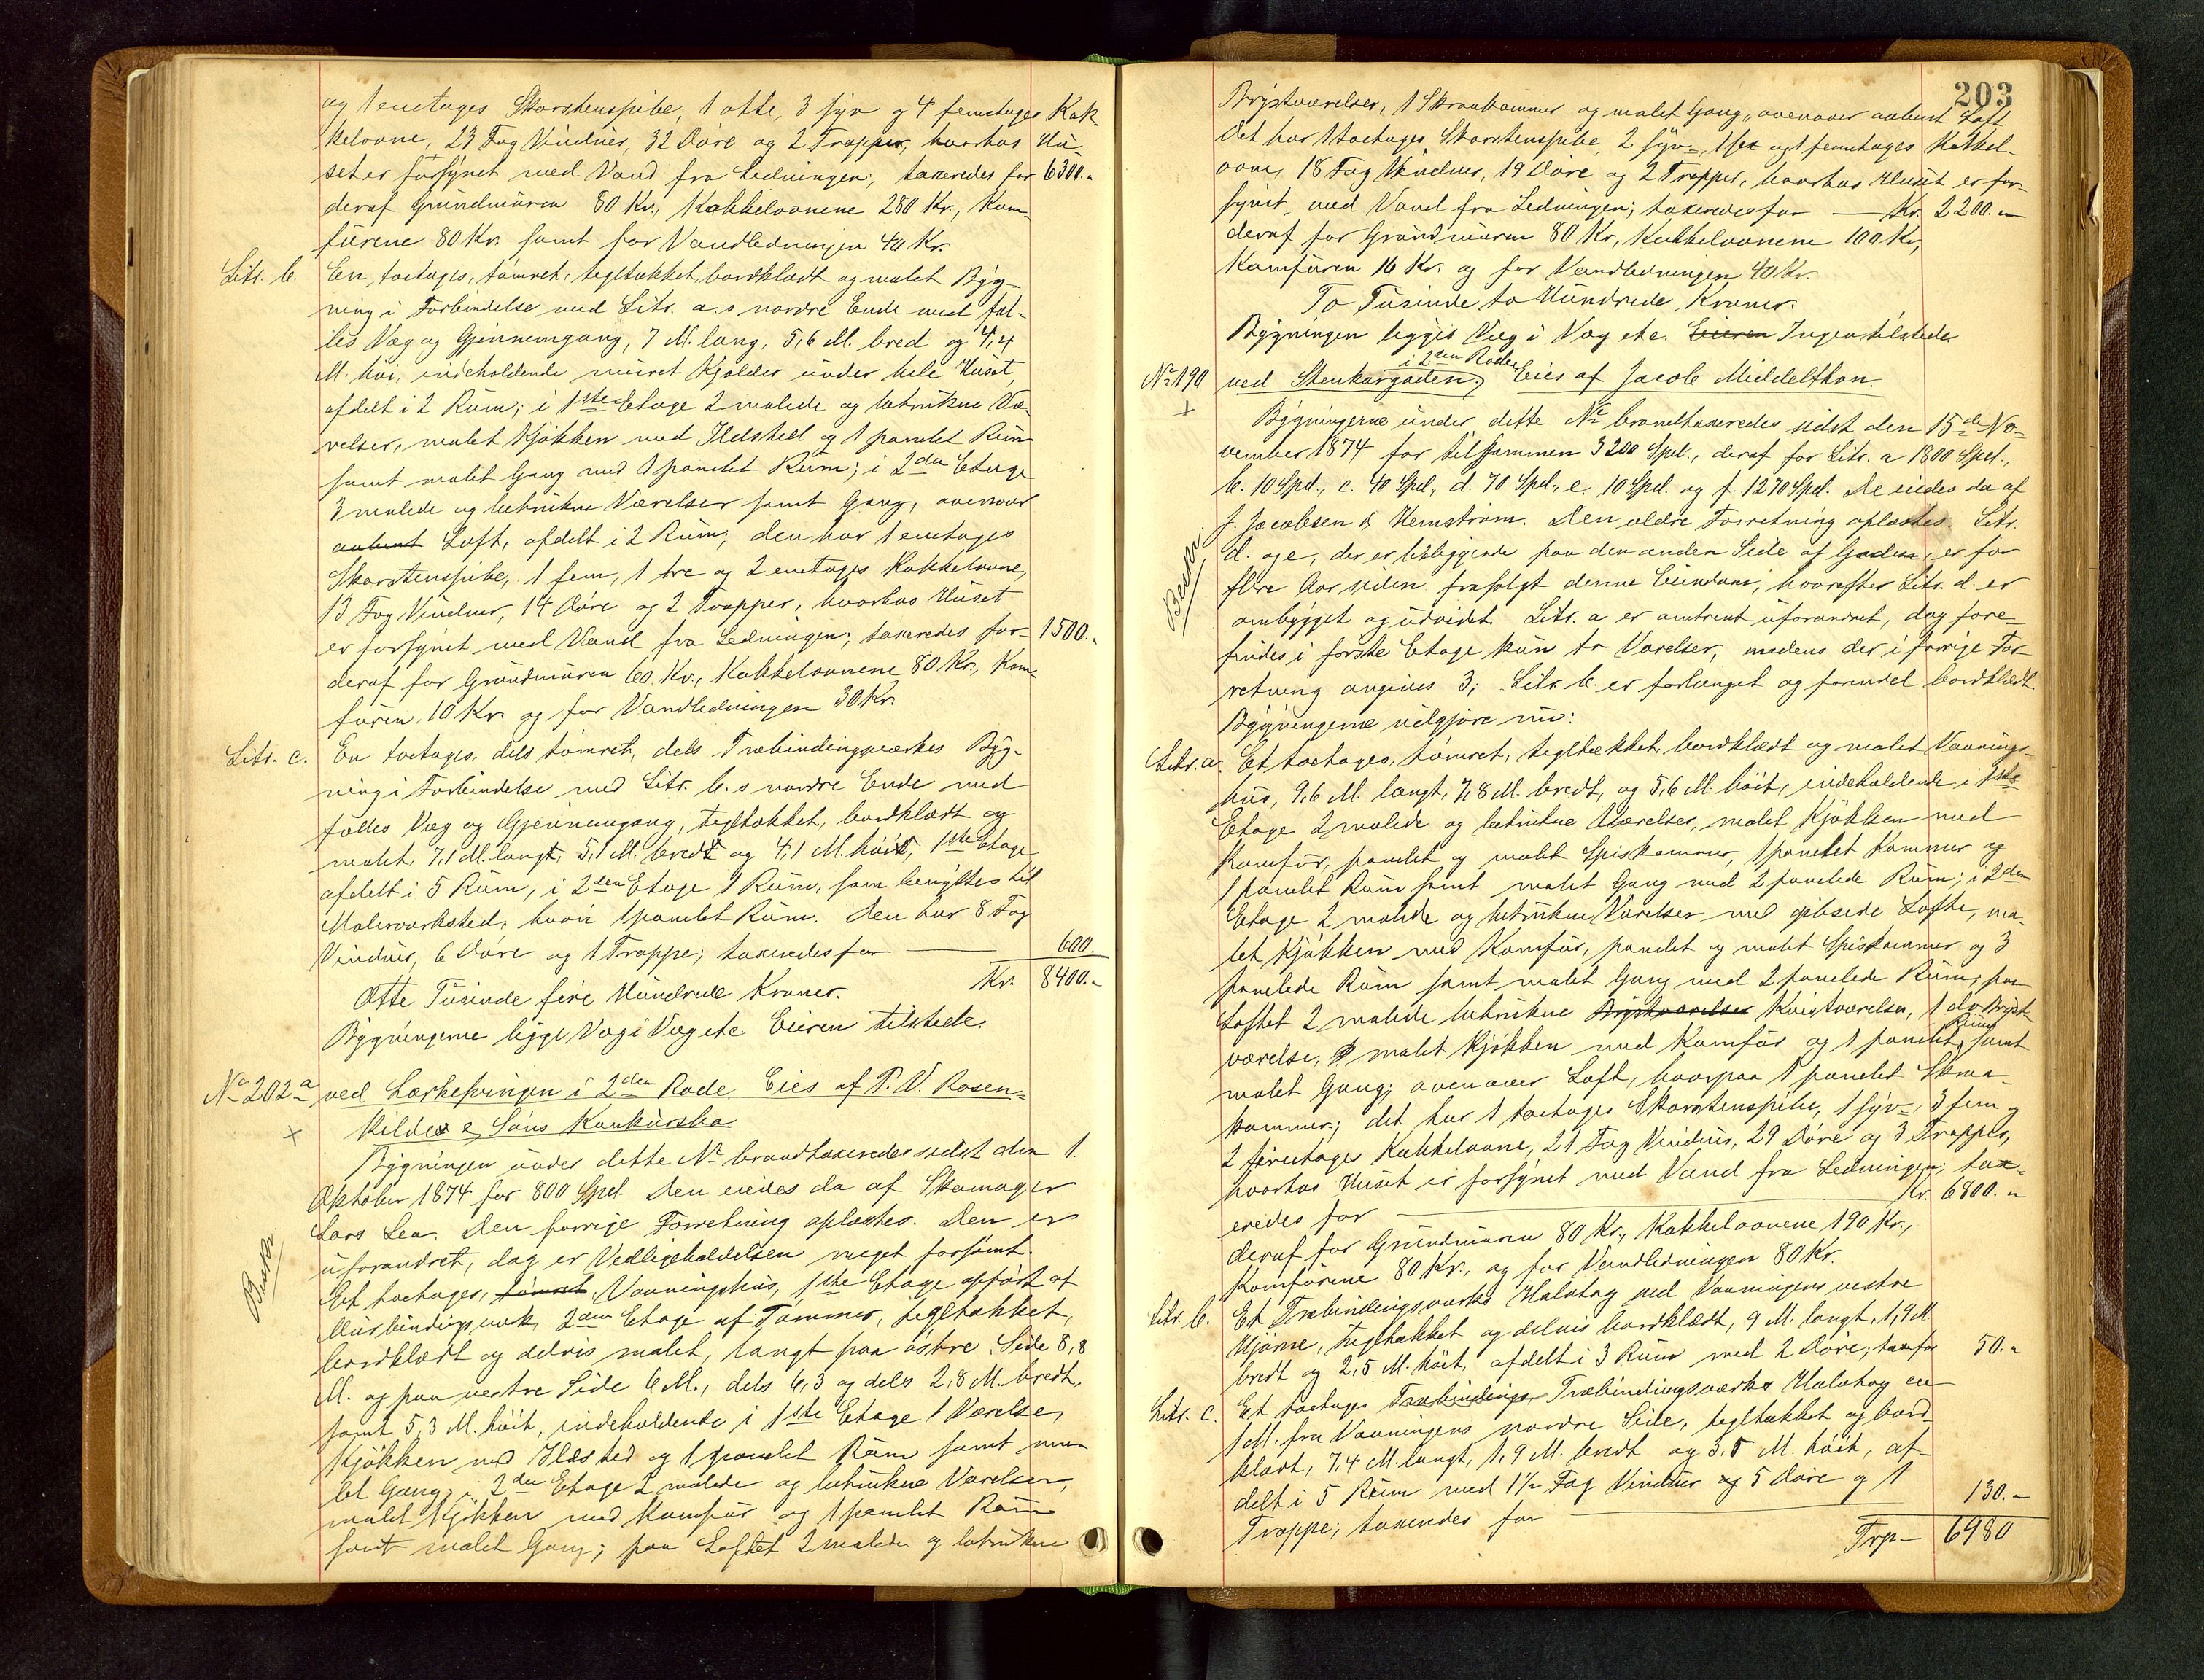 og 1 enetages Skorstenspibe, 1 otte, 3 syv og 4 femetages Kak-
kelovne, 23 Fag Vinduer, 32 Døre og 2 Trapper, hvorhos Hu
set er forsynet med Vand fra Ledningen; taxeredes for 6300.-
deraf Grundmuren 80 Kr., Kakkelovnene 280 Kr., Kom-
fürene 80 Kr. samt for Vandledningen 40 Kr.
Litr. b. En toetages, tømret, tegltækket, bordklædt og malet Byg-
ning i Forbindelse med Litr. a.s nordre Ende med fæl-
les Væg og Gjennemgang, 7 M. lang, 5,6 M. bred og 4,4
M. høi, indeholdende muret Kjælder under hele Huset,
afdelt i 2 Rum; i 1ste Etage 2 malede og betrukne Væ-
relser, malet Kjøkken med Ildsted og 1 panelet Rum
samt malet Gang med 1 panelet Rum; i 2den Etage
3 malede og betrukne Værelser samt Gang, ovenover
aabent Loft, afdelt i 2 Rum; den har 1 enetages
Skorstenspibe, 1 fem, 1 tre og 2 enetages Kakkelovne,
13 Fag Vinduer, 14 Døre og 2 Trapper, hvorhos Huset
er forsynet med Vand fra Ledningen; taxeredes for 1500.-
deraf for Grundmuren 60 Kr., Kakkelovnene 80 Kr., Kom-
furen 10 Kr. og for Vandledningen 30 Kr.
Litr. c. En toetages, dels tømret, dels Træbindingsværkes Byg-
ning i Forbindelse med Litr. b.s nordre Ende med
fælles Væg og Gjennemgang, tegltækket, bordklædt og
malet, 7,1 M. langt, 5,1 M. bredt og 4,1 M. høit, 1ste Etage
afdelt i 5 Rum, i 2den Etage 1 Rum, som benyttes til
Malerværksted, hvori 1 panelet Rum. Den har 8 Fag
Vinduer, 6 Døre og 1 Trappe; taxeredes for 600.-
Otte Tusinde fire Hundrede Kroner. Kr. 8400.-
Bygningerne ligge Væg i Væg etc. Eieren tilstede.
No 202a ved Lærkesvingen i 2den Rode. Eies af P. V. Rosen-
kilde & Søns Konkursbo
Bygningen under dette No brandtaxeredes sidst den 1.
Oktober 1874 for 800 Spd. Den eiedes da af Skomager
Lars Lea. Den forrige Forretning oplæstes. Den er
uforandret, dog er Vedligeholdelsen meget forsømt.
Et toetages, tømret, Vaaningshus, 1ste Etage opført af
Murbindingsværk, 2den Etage af Tømmer, tegltækket,
bordklædt og delvis malet, langt paa østre Side 8,8
M. og paa vestre Side 6 M., dels 6,3 og dels 2,8 M. bredt,
samt 5,3 M. høit, indeholdende i 1ste Etage 1 Værelse,
Kjøkken med Ildsted og 1 panelet Rum samt ma-
let Gang; i 2den Etage 2 malede og betrukne Værelser,
malet Kjøkken med Komfur og 1 panelet Rum
samt malet Gang; paa Loftet 2 malede og betrukne
203
Brystværelser, 1 Skraakammer og malet Gang, ovenover aabent Loft
Det har 1 toetages Skorstenspibe, 2 syv-, 1 sex og 1 femetages Kakkel-
ovne, 18 Fag Vinduer, 19 Døre og 2 Trapper, hvorhos Huset er for-
synet med Vand fra Ledningen; taxeredes for Kr. 2200.-
deraf for Grundmuren 80 Kr., Kakkelovnene 100 Kr.,
Komfuren 16 Kr. og for Vandledningen 40 Kr.
To Tusinde to Hundrede Kroner.
Bygningen ligger Væg i Væg etc. Eieren Ingen tilstede
No 190 ved Stenkargaden, i 2den Rode Eies af Jacob Middelthon.
Bygningerne under dette No brandtaxeredes sidst den 15de No-
vember 1874 for tilsammen 3200 Spd., deraf for Litr. a 1800 Spd.,
b. 10 Spd., c. 40 Spd., d. 70 Spd., e. 10 Spd. og f. 1270 Spd. De eiedes da af
J. Jacobsen & Hemstrøm. Den ældre Forretning oplæstes. Litr.
d. og e, der er beliggende paa den anden Side af Gaden, er for
flere Aar siden frasolgt denne Eiendom, hvorefter Litr. d. er
ombygget og udvidet. Litr. a er omtrent uforandret, dog fore-
findes i første Etage kun to Værelser, medens der i forrige For
retning angives 3; Litr. b. er forlænget og forandel bordklædt
Bygningerne udgjøre nu:
Litr. a. Et toetages, tømret, tegltækket, bordklædt og malet Vaanings-
hus, 9,6 M. langt, 7,8 M. bredt, og 5,6 M. høit, indeholdende i 1ste
Etage 2 malede og betrukne Værelser, malet Kjøkken med
Komfur, panelet og malet Spiskammer, 1 panelet Kammer og
1 panelet Rum samt malet Gang med 2 panelede Rum; i 2den
Etage 2 malede og betrukne Værelser med gibsede Lofte, ma-
let Kjøkken med Komfur, panelet og malet Spiskammer og 3
panelede Rum samt malet Gang med 2 panelede Rum; paa
Loftet 2 malede betrukne Brystværelser Kvistværelser, 1 do Bryst-
værelse, malet Kjøkken med Komfur og 1 panelet Rum samt
malet Gang; ovenover Loft, hvorpaa 1 panelet Skraa-
kammer; det har 1 toetages Skorstenspibe, 1 syv-, 3 fem og
2 fireetages Kakkelovne, 21 Fag Vinduer, 29 Døre og 3 Trapper,
hvorhos Huset er forsynet med Vand fra Ledningen; tax-
eredes for Kr. 6800.-
deraf for Grundmuren 80 Kr., Kakkelovnene 190 Kr.,
Komfurene 80 Kr., og for Vandledningen 80 Kr.
Litr. b. Et Træbindingsværks Halvtag ved Vaaningens vestre
Hjørne, tegltækket og delvis bordklædt, 9 M. langt, 1,9 M
bredt og 2,5 M. høit, afdelt i 3 Rum med 2 Døre; tax for 50.-
Litr. c. Et toetages Træbindings Træbindingsværks Halvtag en
1 M. fra Vaaningens nordre Side, tegltækket og bord-
klædt, 7,4 M. langt, 1,9 M. bredt og 3,5 M. høit, af-
delt i 5 Rum med 1½ Fag Vinduer og 5 Døre og 1
Trappe; taxeredes for 130.-
Trp- 6980